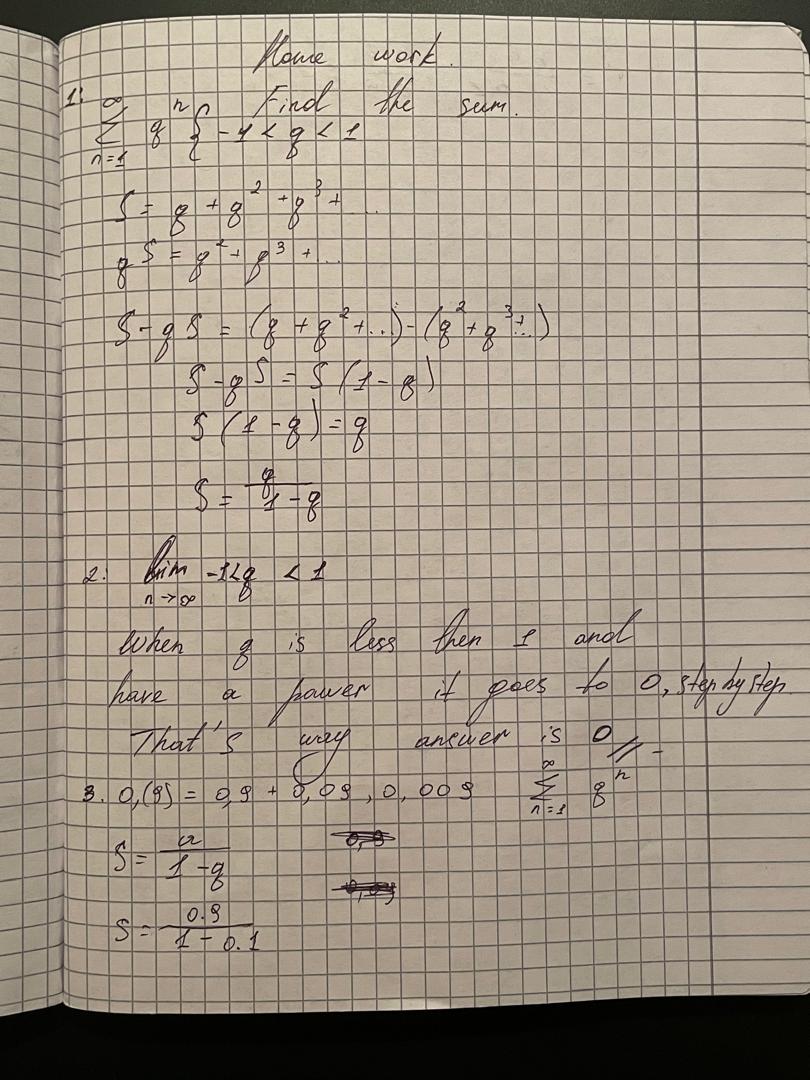 Home work.
1: Find the sum.
∞ ∑ n=1 q^n { -1 < q < 1
S = q + q^2 + q^3 + ...
qS = q^2 + q^3 + ...
S - qS = (q + q^2 + ...) - (q^2 + q^3 + ...)
S - qS = S (1 - q)
S (1 - q) = q
S = q / (1 - q)
2: lim n→∞ -1<q < 1
When q is less then 1 and
have a power it goes to 0, step by step.
That's way answer is 0 //
3. 0,(9) = 0,9 + 0,09, 0,009 ∞ ∑ n=1 q^n
S = a / (1 - q)
S = 0.9 / (1 - 0.1)